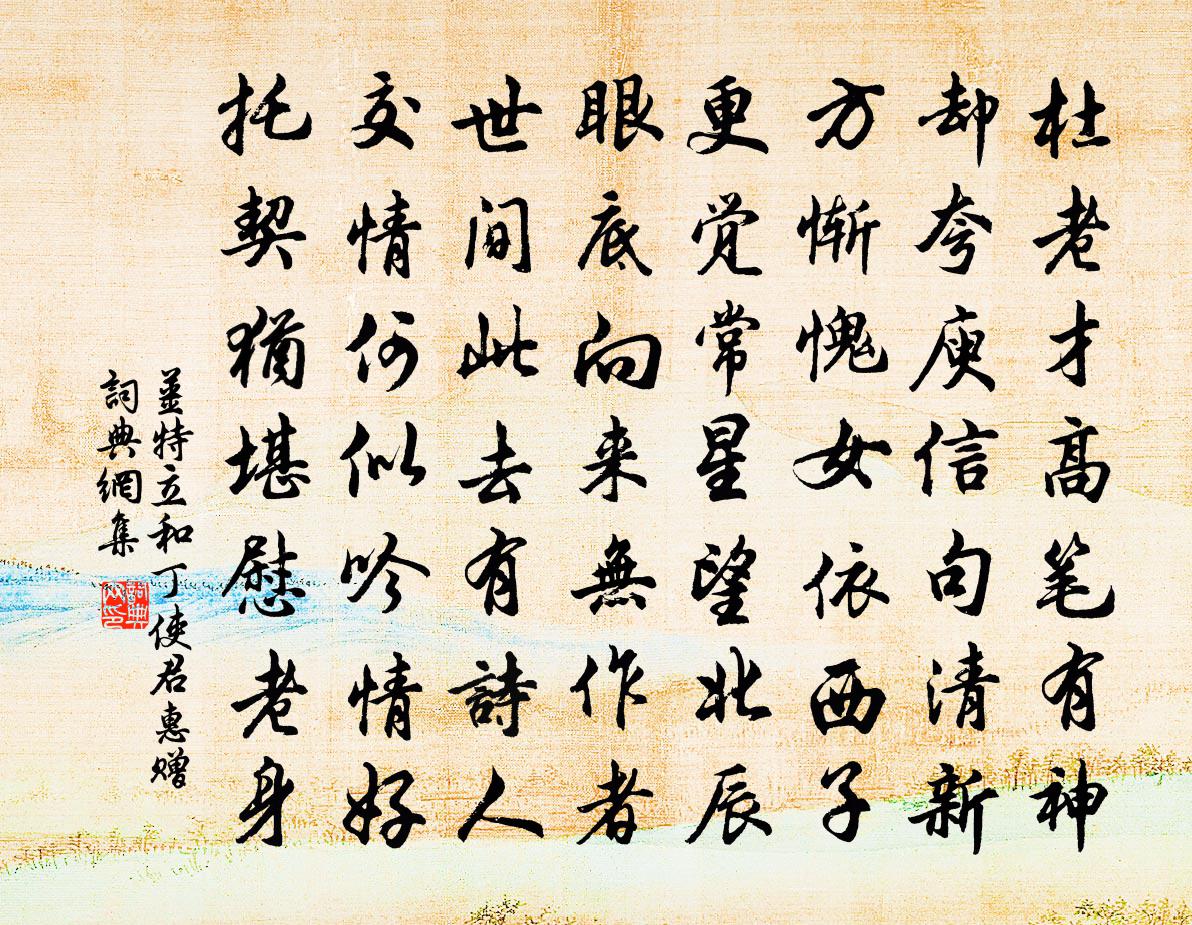 杜老才高笔有神
却夸庾信句清新
方惭愧女依西子
更觉常星望北辰
眼底向来無作者
世间此去有詩人
交情何似吟情好
托契猶堪慰老身
姜特立和丁使君惠赠
詞典網集
詞典